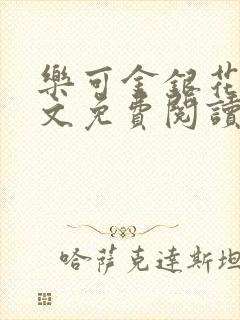 樂可金銀花
文免費閱讀
哈薩克達斯坦